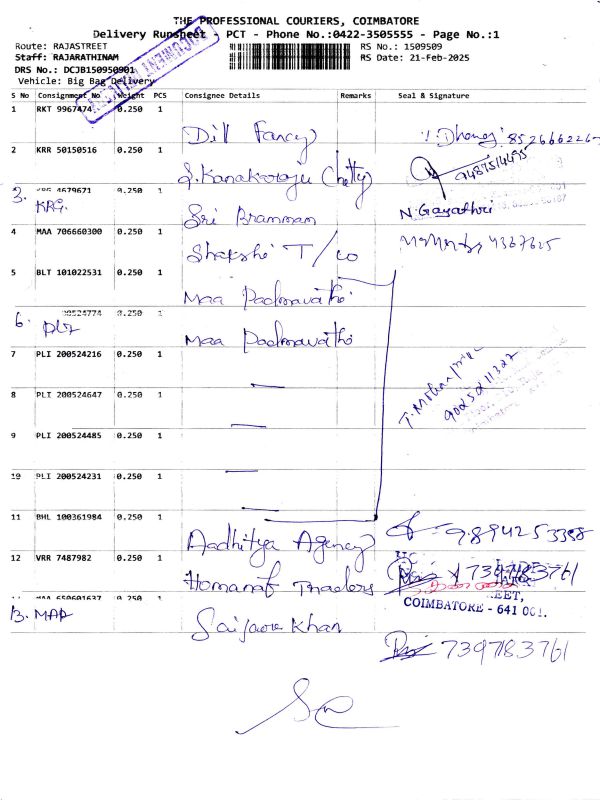 THE PROFESSIONAL COURIERS, COIMBATORE
Delivery Runsheet - PCT - Phone No.:0422-3505555 - Page No.:1
Route: RAJASTREET RS No.: 1509509
Staff: RAJARATHINAM RS Date: 21-Feb-2025
DRS No.: DCJB150950901
Vehicle: Big Bag Delivery
S No Consignment No Weight PCS Consignee Details Remarks Seal & Signature
1 RKT 9967474 0.250 1
Dill Fancy
2 KRR 50150516 0.250 1
S. Kanakaraju Chetty 9487514495
3. KRG 4679671 0.250 1
KRG. Sri Bramman N. Gayathri
4 MAA 706660300 0.250 1
Shakshi T/co
5 BLT 101022531 0.250 1
Maa Padmavathi
6. 200524774 0.250 1
PLI Maa Padmavathi
7 PLI 200524216 0.250 1
8 PLI 200524647 0.250 1
9 PLI 200524485 0.250 1
10 PLI 200524231 0.250 1
11 BHL 100361984 0.250 1
Aadhitya Agency 9894253398
12 VRR 7487982 0.250 1
Homanat Traders 7397183761
MAA 650601637 0.250 1
COIMBATORE - 641 001.
13. MAA
7397183761